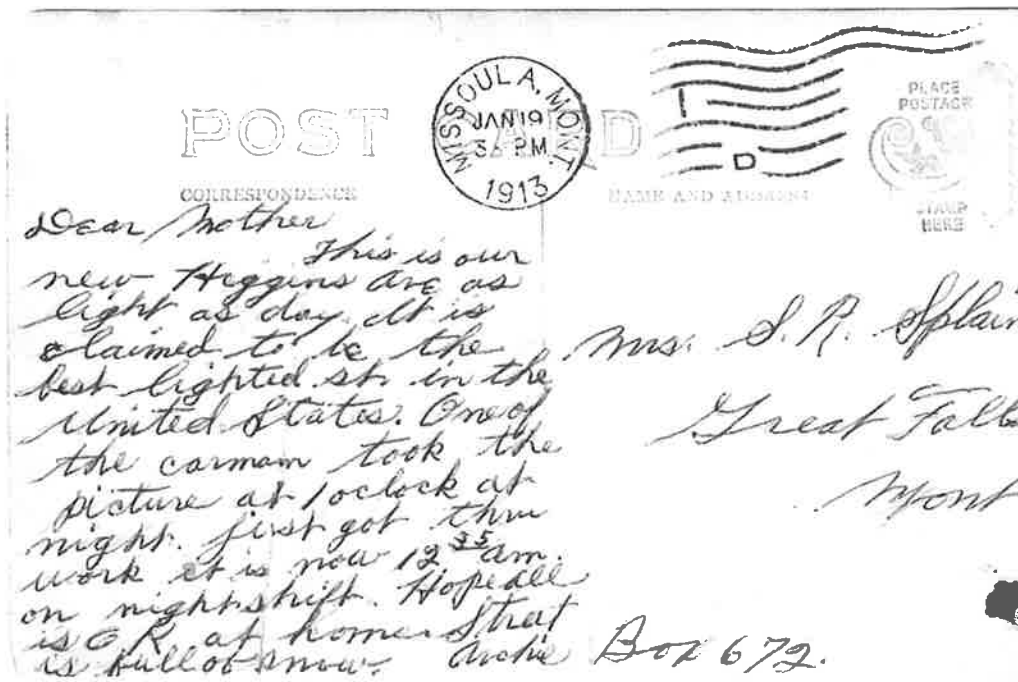 POST CARD
MISSOULA, MONT.
JAN 19
PM
1913
PLACE
POSTAGE
STAMP
HERE
CORRESPONDENCE
NAME AND ADDRESS
Dear Mother
This is our
new Higgins Ave as
light as day. It is
claimed to be the
best lighted st. in the
United States. One of
the carmam took the
picture at 1 oclock at
night. Just got thru
work it is now 12 35 am.
on nightshift. Hope all
is O K at home. Street
is full of snow. Archie
Mrs. S. R. Splain
Great Falls
Mont
Box 672.